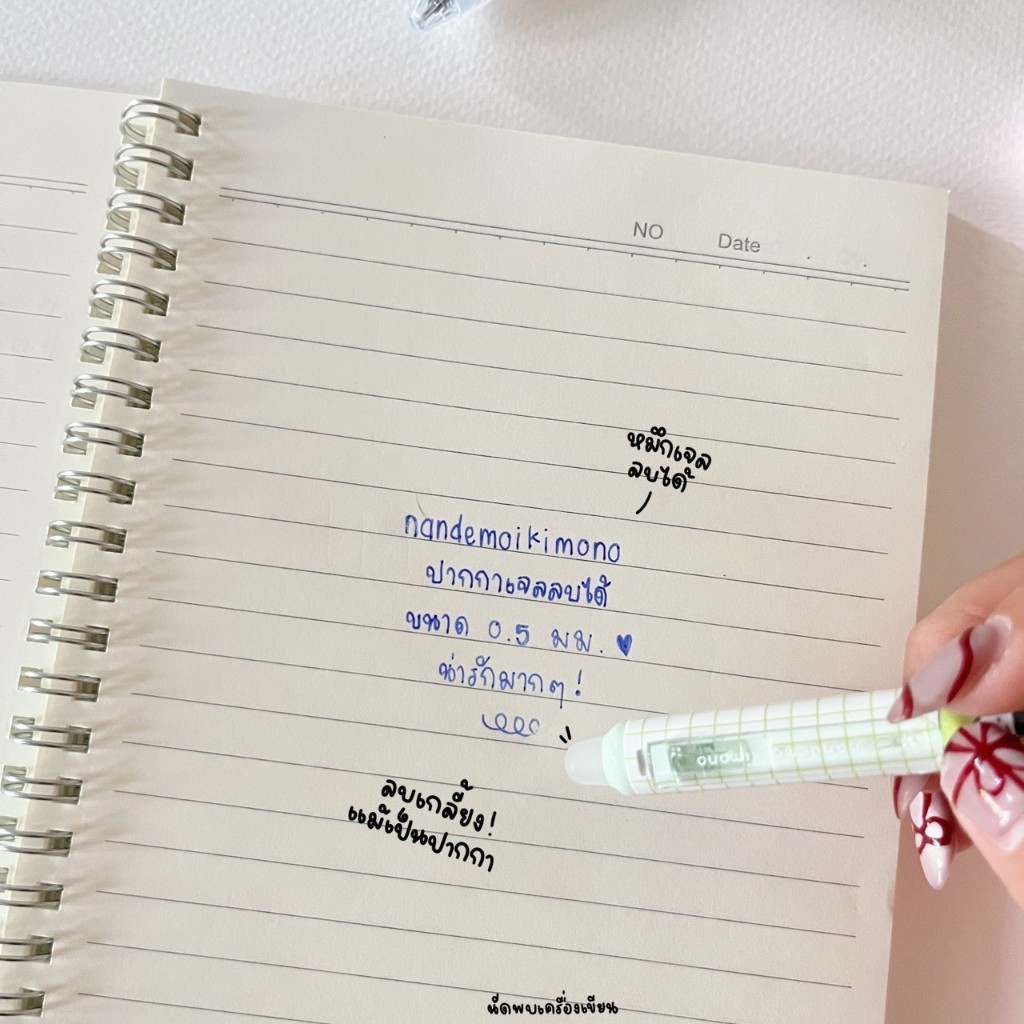 NO Date
หมึกเจล
ลบได้
nandemoikimono
ปากกาเจลลบได้
ขนาด 0.5 มม. ♥
น่ารักมากๆ!
ลบเกลี้ยง!
แม้เป็นปากกา
นัดพบเครื่องเขียน